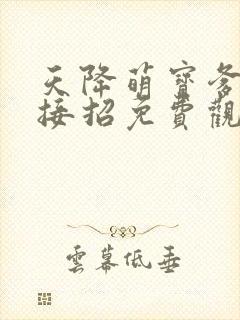 天降萌寶爹
接招免費觀
雲幕低垂